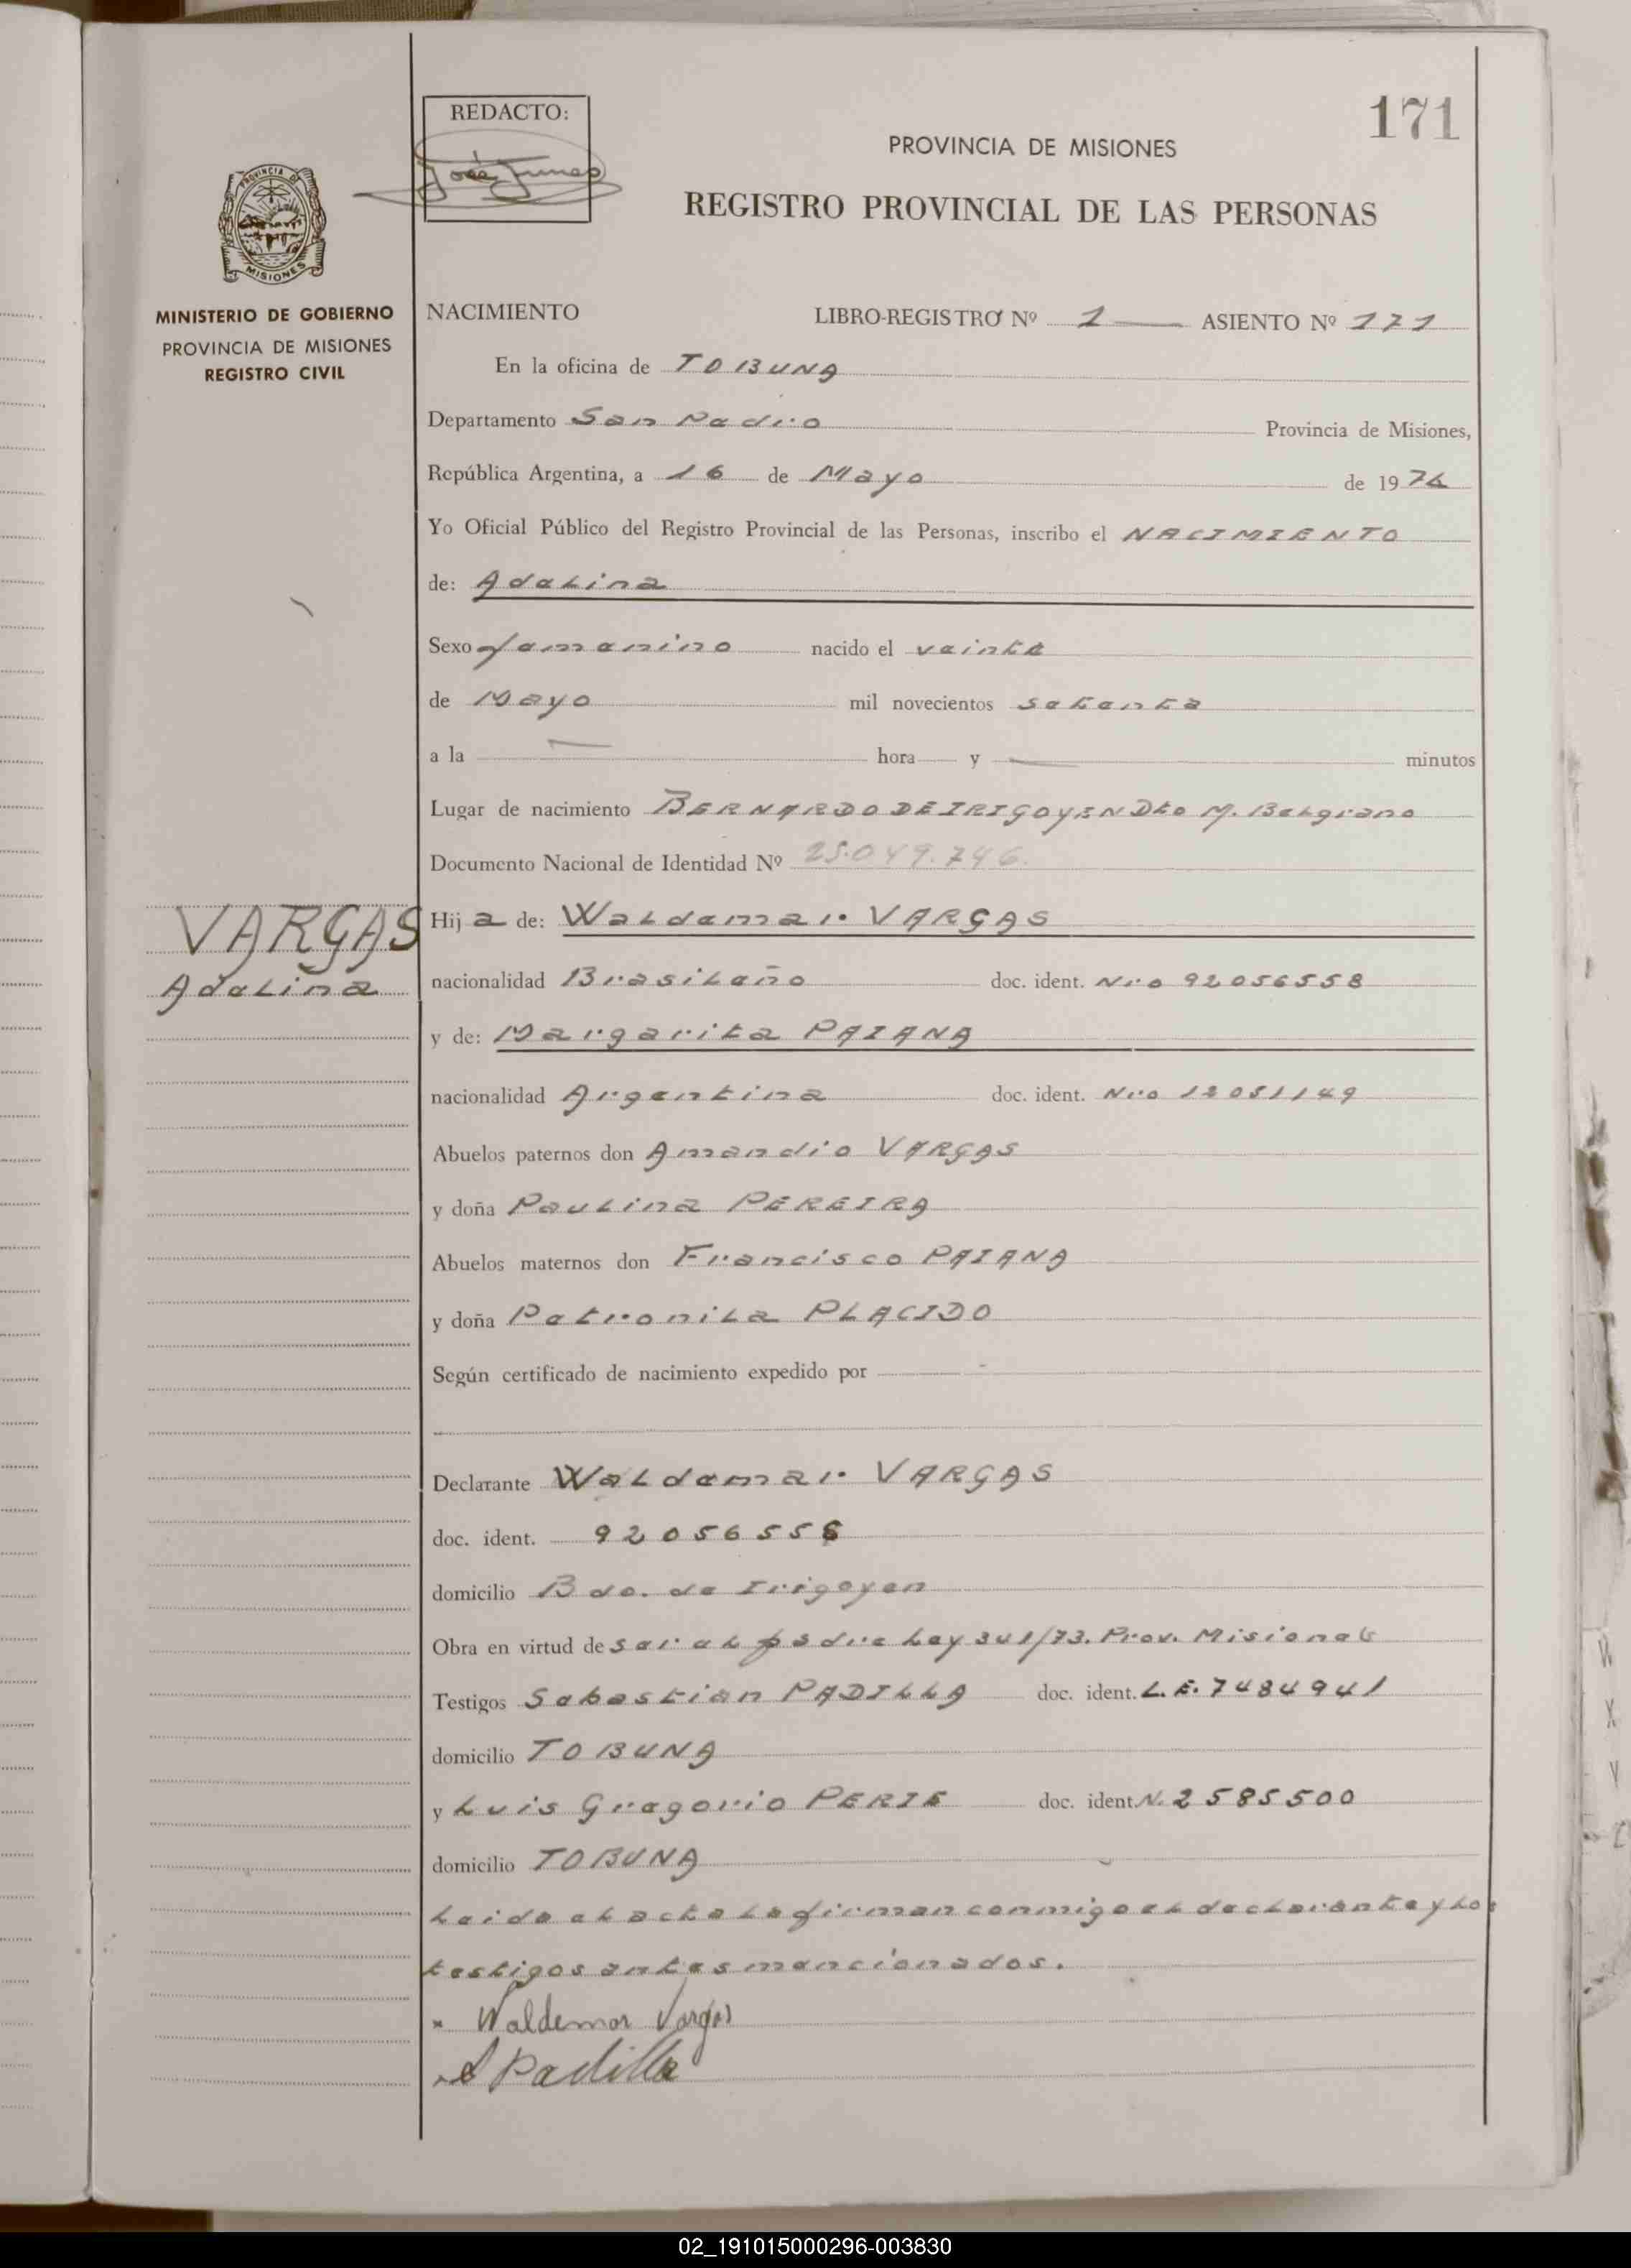 171
REDACTO:
José Funes
PROVINCIA DE MISIONES
REGISTRO PROVINCIAL DE LAS PERSONAS
PROVINCIA DE
MISIONES
MINISTERIO DE GOBIERNO
PROVINCIA DE MISIONES
REGISTRO CIVIL
NACIMIENTO LIBRO-REGISTRO Nº 1 ASIENTO Nº 171
En la oficina de TOBUNA
Departamento San Pedro Provincia de Misiones,
República Argentina, a 16 de Mayo de 1974
Yo Oficial Público del Registro Provincial de las Personas, inscribo el NACIMIENTO
de: Adelina
Sexo femenino nacido el veinte
de Mayo mil novecientos setenta
a la — hora y — minutos
Lugar de nacimiento BERNARDO DE IRIGOYEN Dto M. Belgrano
Documento Nacional de Identidad Nº 25.049.746.
VARGAS
Adelina
Hija de: Waldemar VARGAS
nacionalidad Brasileño doc. ident. Nro 92056558
y de: Margarita PAIANA
nacionalidad Argentina doc. ident. Nro 12051149
Abuelos paternos don Amandio VARGAS
y doña Paulina PEREIRA
Abuelos maternos don Francisco PAIANA
y doña Petronila PLACIDO
Según certificado de nacimiento expedido por -
Declarante Waldemar VARGAS
doc. ident. 92056558
domicilio Bdo. de Irigoyen
Obra en virtud de ser el padre Ley 341/73. Prov. Misiones
Testigos Sebastian PADILLA doc. ident. L.E. 7484941
domicilio TOBUNA
y Luis Gregorio PERIE doc. ident. N. 2585500
domicilio TOBUNA
Leida el acta la firman conmigo el declarante y los
testigos antes mencionados.
Waldemar Vargas
S Padilla
02_191015000296-003830